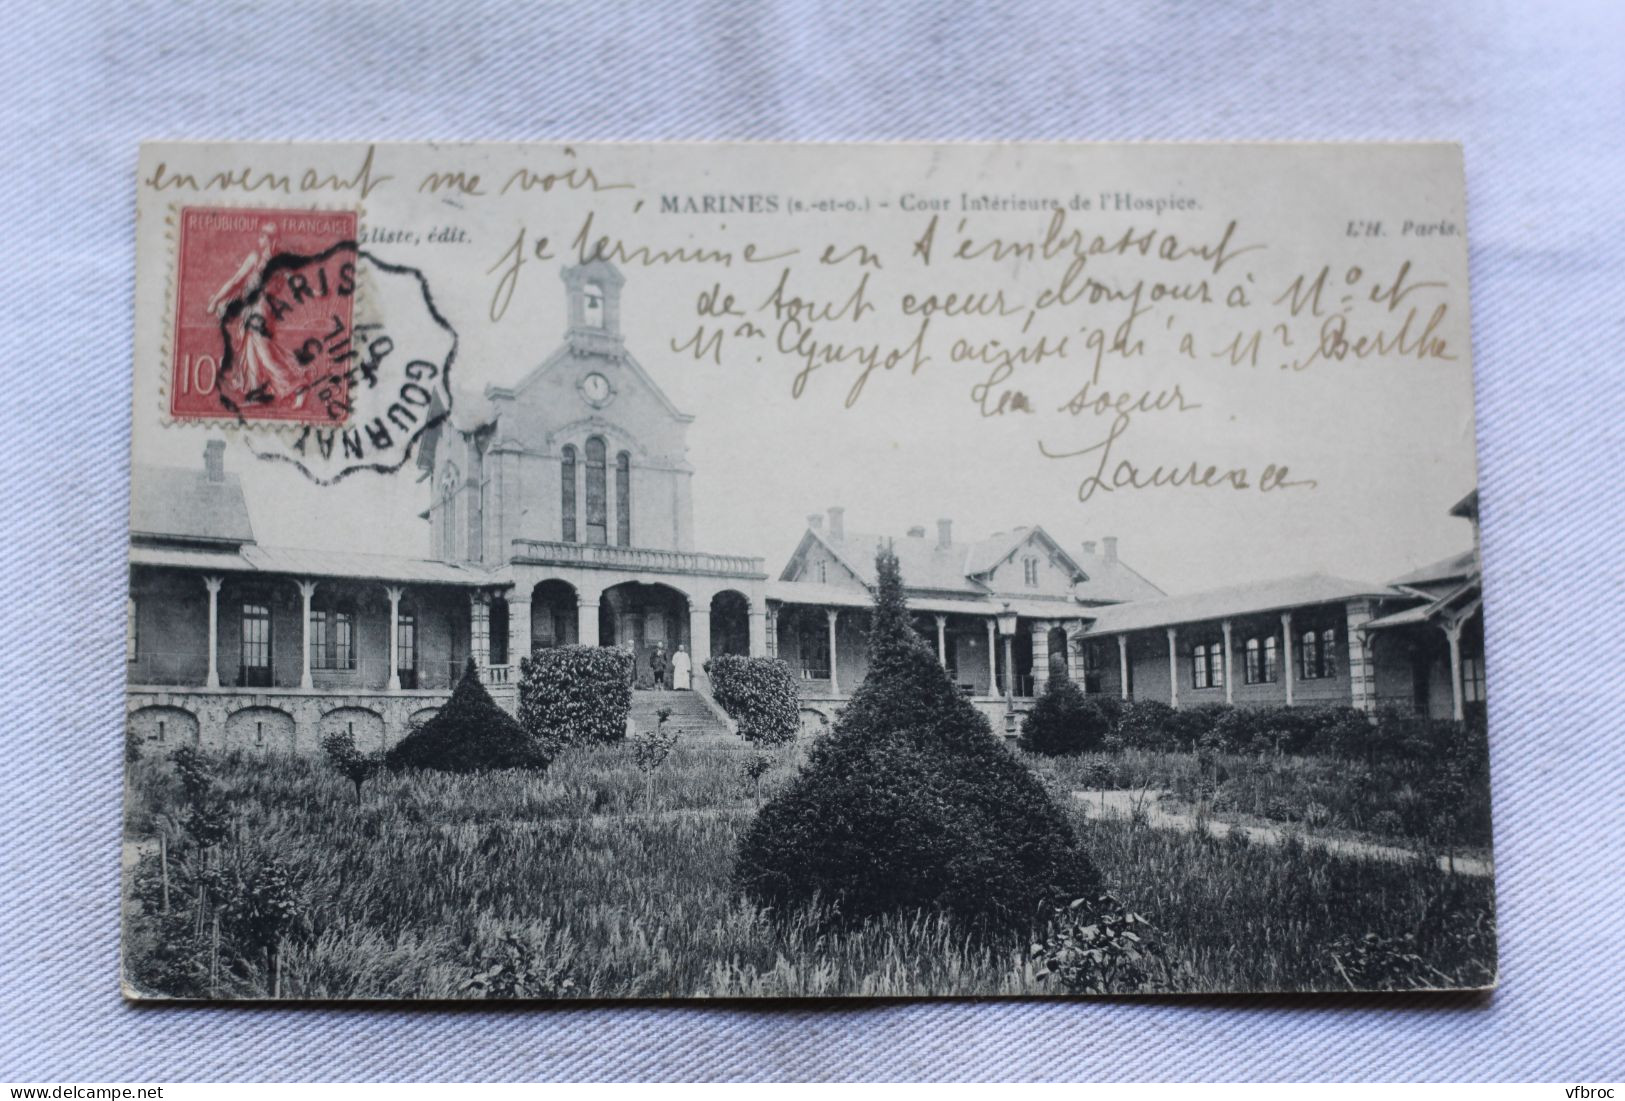 en venant me voir
MARINES (s.-et-o.) - Cour Intérieure de l'Hospice.
liste, édit.
L'H. Paris.
REPUBLIQUE FRANÇAISE
10
PARIS A GOURNAY
5 JUIL 07
je termine en t'embrassant
de tout coeur, bonjour à Mr et
Mm. Guyot ainsi qu'à Mr. Berthe
ta soeur
Laurence
vfbroc